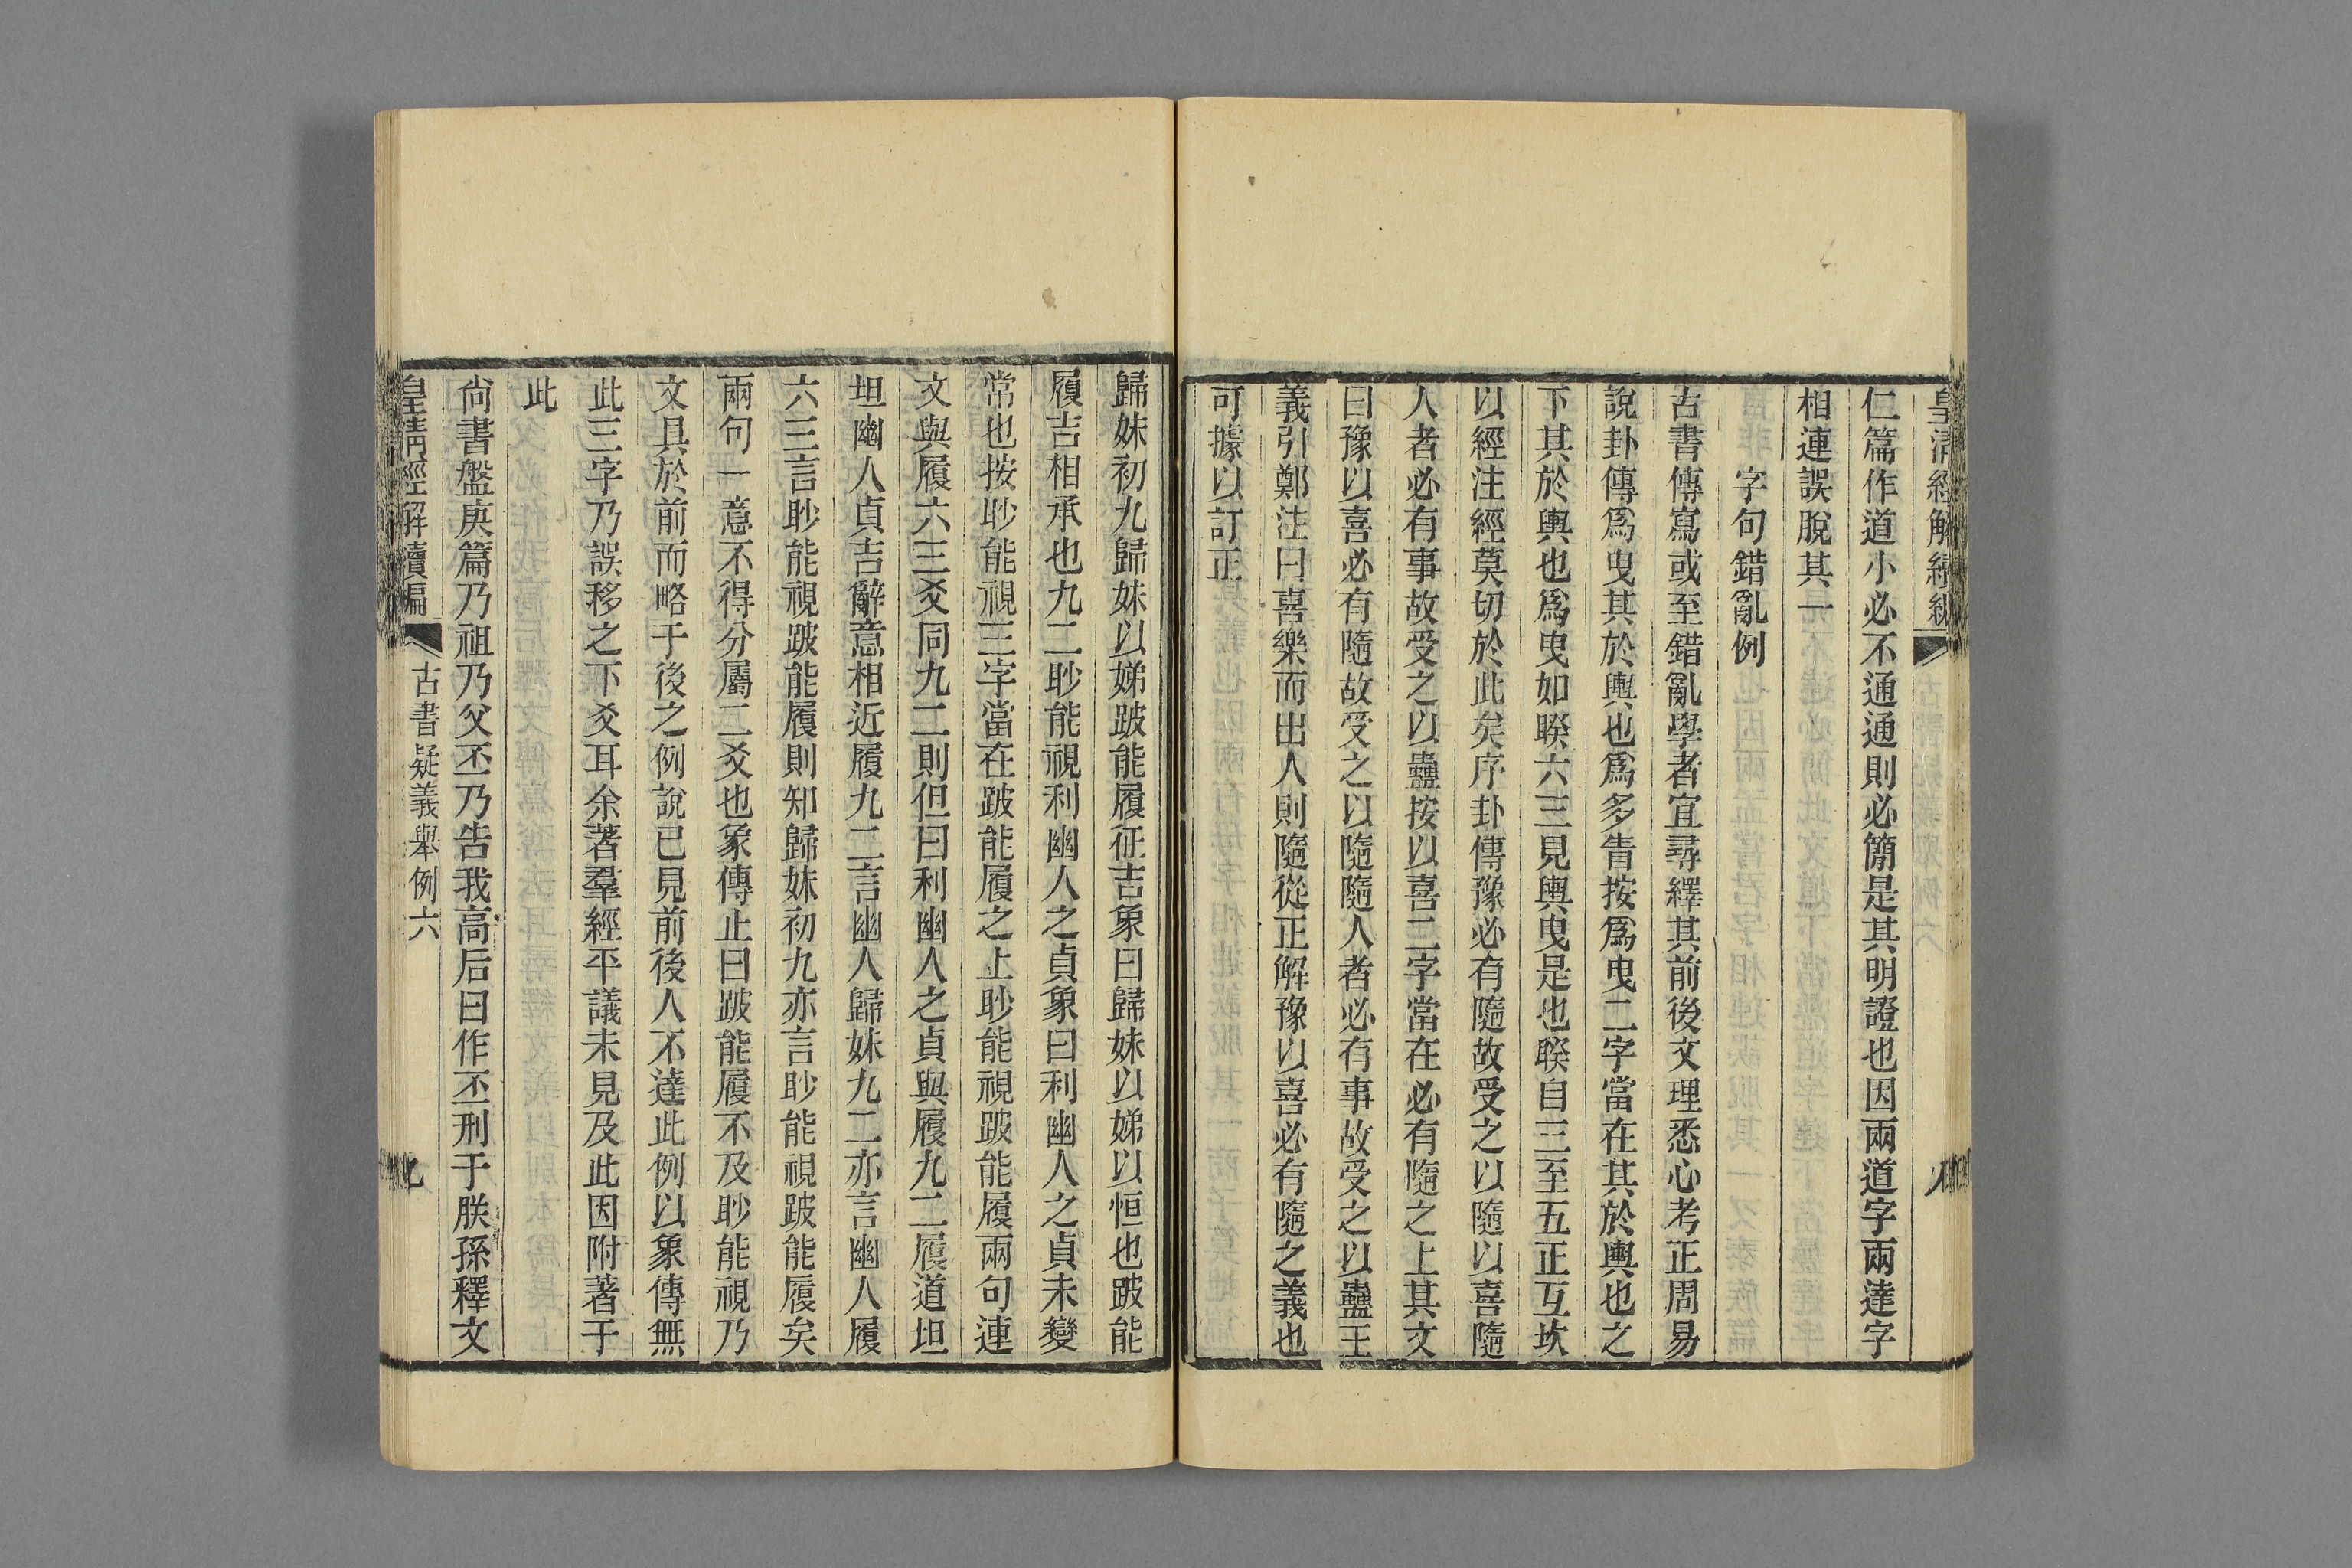 皇清經解續編
八
仁篇作道小必不通通則必簡是其明證也因兩道字兩達字
相連誤脫其一
字句錯亂例
古書傳寫或至錯亂學者宜尋繹其前後文理悉心考正周易
說卦傳爲曳其於輿也爲多眚按爲曳二字當在其於輿也之
下其於輿也爲曳如睽六三見輿曳是也睽自三至五正互坎
以經注經莫切於此矣序卦傳豫必有隨故受之以隨以喜隨
人者必有事故受之以蠱按以喜二字當在必有隨之上其文
曰豫以喜必有隨故受之以隨隨人者必有事故受之以蠱王
義引鄭注曰喜樂而出人則隨從正解豫以喜必有隨之義也
可據以訂正
歸妹初九歸妹以娣跛能履征吉象曰歸妹以娣以恒也跛能
履吉相承也九二眇能視利幽人之貞象曰利幽人之貞未變
常也按眇能視三字當在跛能履之上眇能視跛能履兩句連
文與履六三爻同九二則但曰利幽人之貞與履九二履道坦
坦幽人貞吉辭意相近履九二言幽人歸妹九二亦言幽人履
六三言眇能視跛能履則知歸妹初九亦言眇能視跛能履矣
兩句一意不得分屬二爻也象傳止曰跛能履不及眇能視乃
文具於前而略于後之例說已見前後人不達此例以象傳無
此三字乃誤移之下爻耳余著羣經平議未見及此因附著于
此
尙書盤庚篇乃祖乃父丕乃告我高后曰作丕刑于朕孫釋文
皇清經解續編
古書疑義舉例六
九